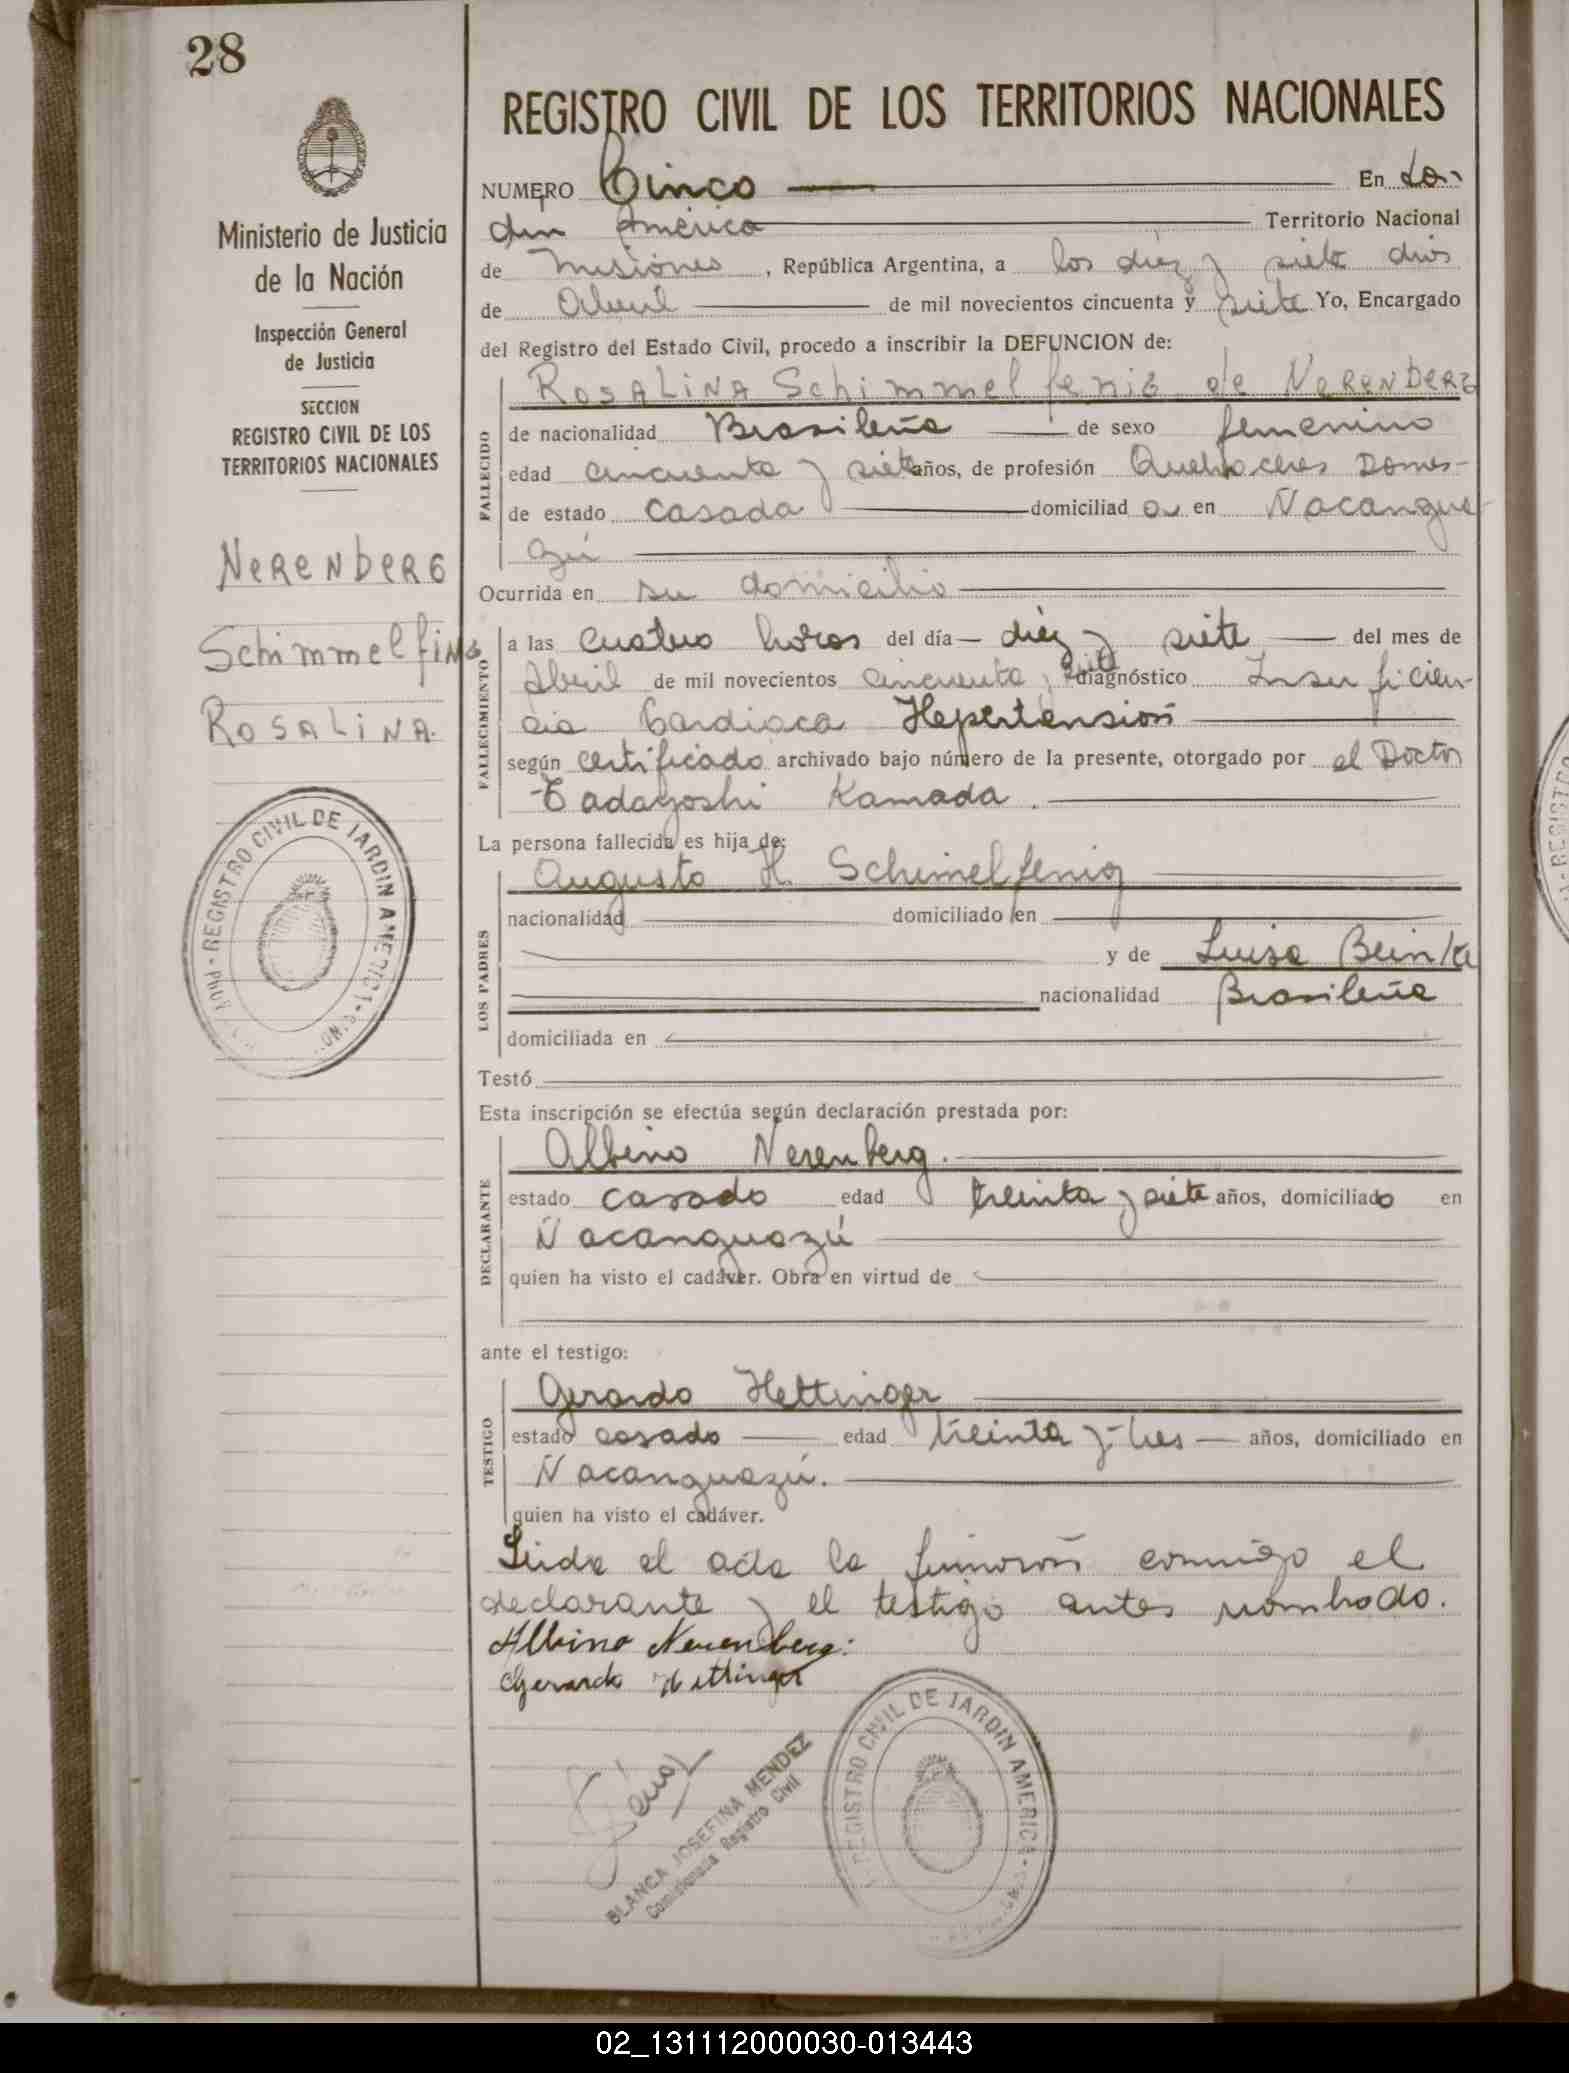 28
Ministerio de Justicia
de la Nación
Inspección General
de Justicia
SECCION
REGISTRO CIVIL DE LOS
TERRITORIOS NACIONALES
NERENBERG
Schimmelfing
ROSALINA.
REGISTRO CIVIL DE JARDIN AMERICA
REGISTRO CIVIL DE LOS TERRITORIOS NACIONALES
NUMERO Cinco En Jar
din América Territorio Nacional
de Misiones, República Argentina, a los diéz y siete dias
de Abril de mil novecientos cincuenta y siete Yo, Encargado
del Registro del Estado Civil, procedo a inscribir la DEFUNCION de:
FALLECIDO
ROSALINA Schimmelfenig de NERENBERG
de nacionalidad Brasileña de sexo femenino
edad cincuenta y siete años, de profesión Quehaceres Domes-
de estado casada domiciliad a en Ñacangua
zú
Ocurrida en su domicilio
FALLECIMIENTO
a las cuatro horas del día diéz y siete del mes de
Abril de mil novecientos cincuenta y siete diagnóstico Insuficien-
cia Cardiaca Hepertensión
según certificado archivado bajo número de la presente, otorgado por el Doctor
Tadayoshi Kamada.
La persona fallecida es hija de:
LOS PADRES
Augusto H. Schimelfenig
nacionalidad domiciliado en
y de Luisa Beinke
nacionalidad Brasileña
domiciliada en
Testó
Esta inscripción se efectúa según declaración prestada por:
DECLARANTE
Albino Nerenberg.
estado casado edad treinta y siete años, domiciliado en
Ñacanguazú
quien ha visto el cadáver. Obra en virtud de
ante el testigo:
TESTIGO
Gerardo Hettinger
estado casado edad treinta y tres años, domiciliado en
Ñacanguazú.
quien ha visto el cadáver.
Leida el acta la firmaron conmigo el
declarante y el testigo antes nombrado.
Albino Nerenberg:
Gerardo Hettinger
BLANCA JOSEFINA MENDEZ
Comisionada Registro Civil
REGISTRO CIVIL DE JARDIN AMERICA
02_131112000030-013443